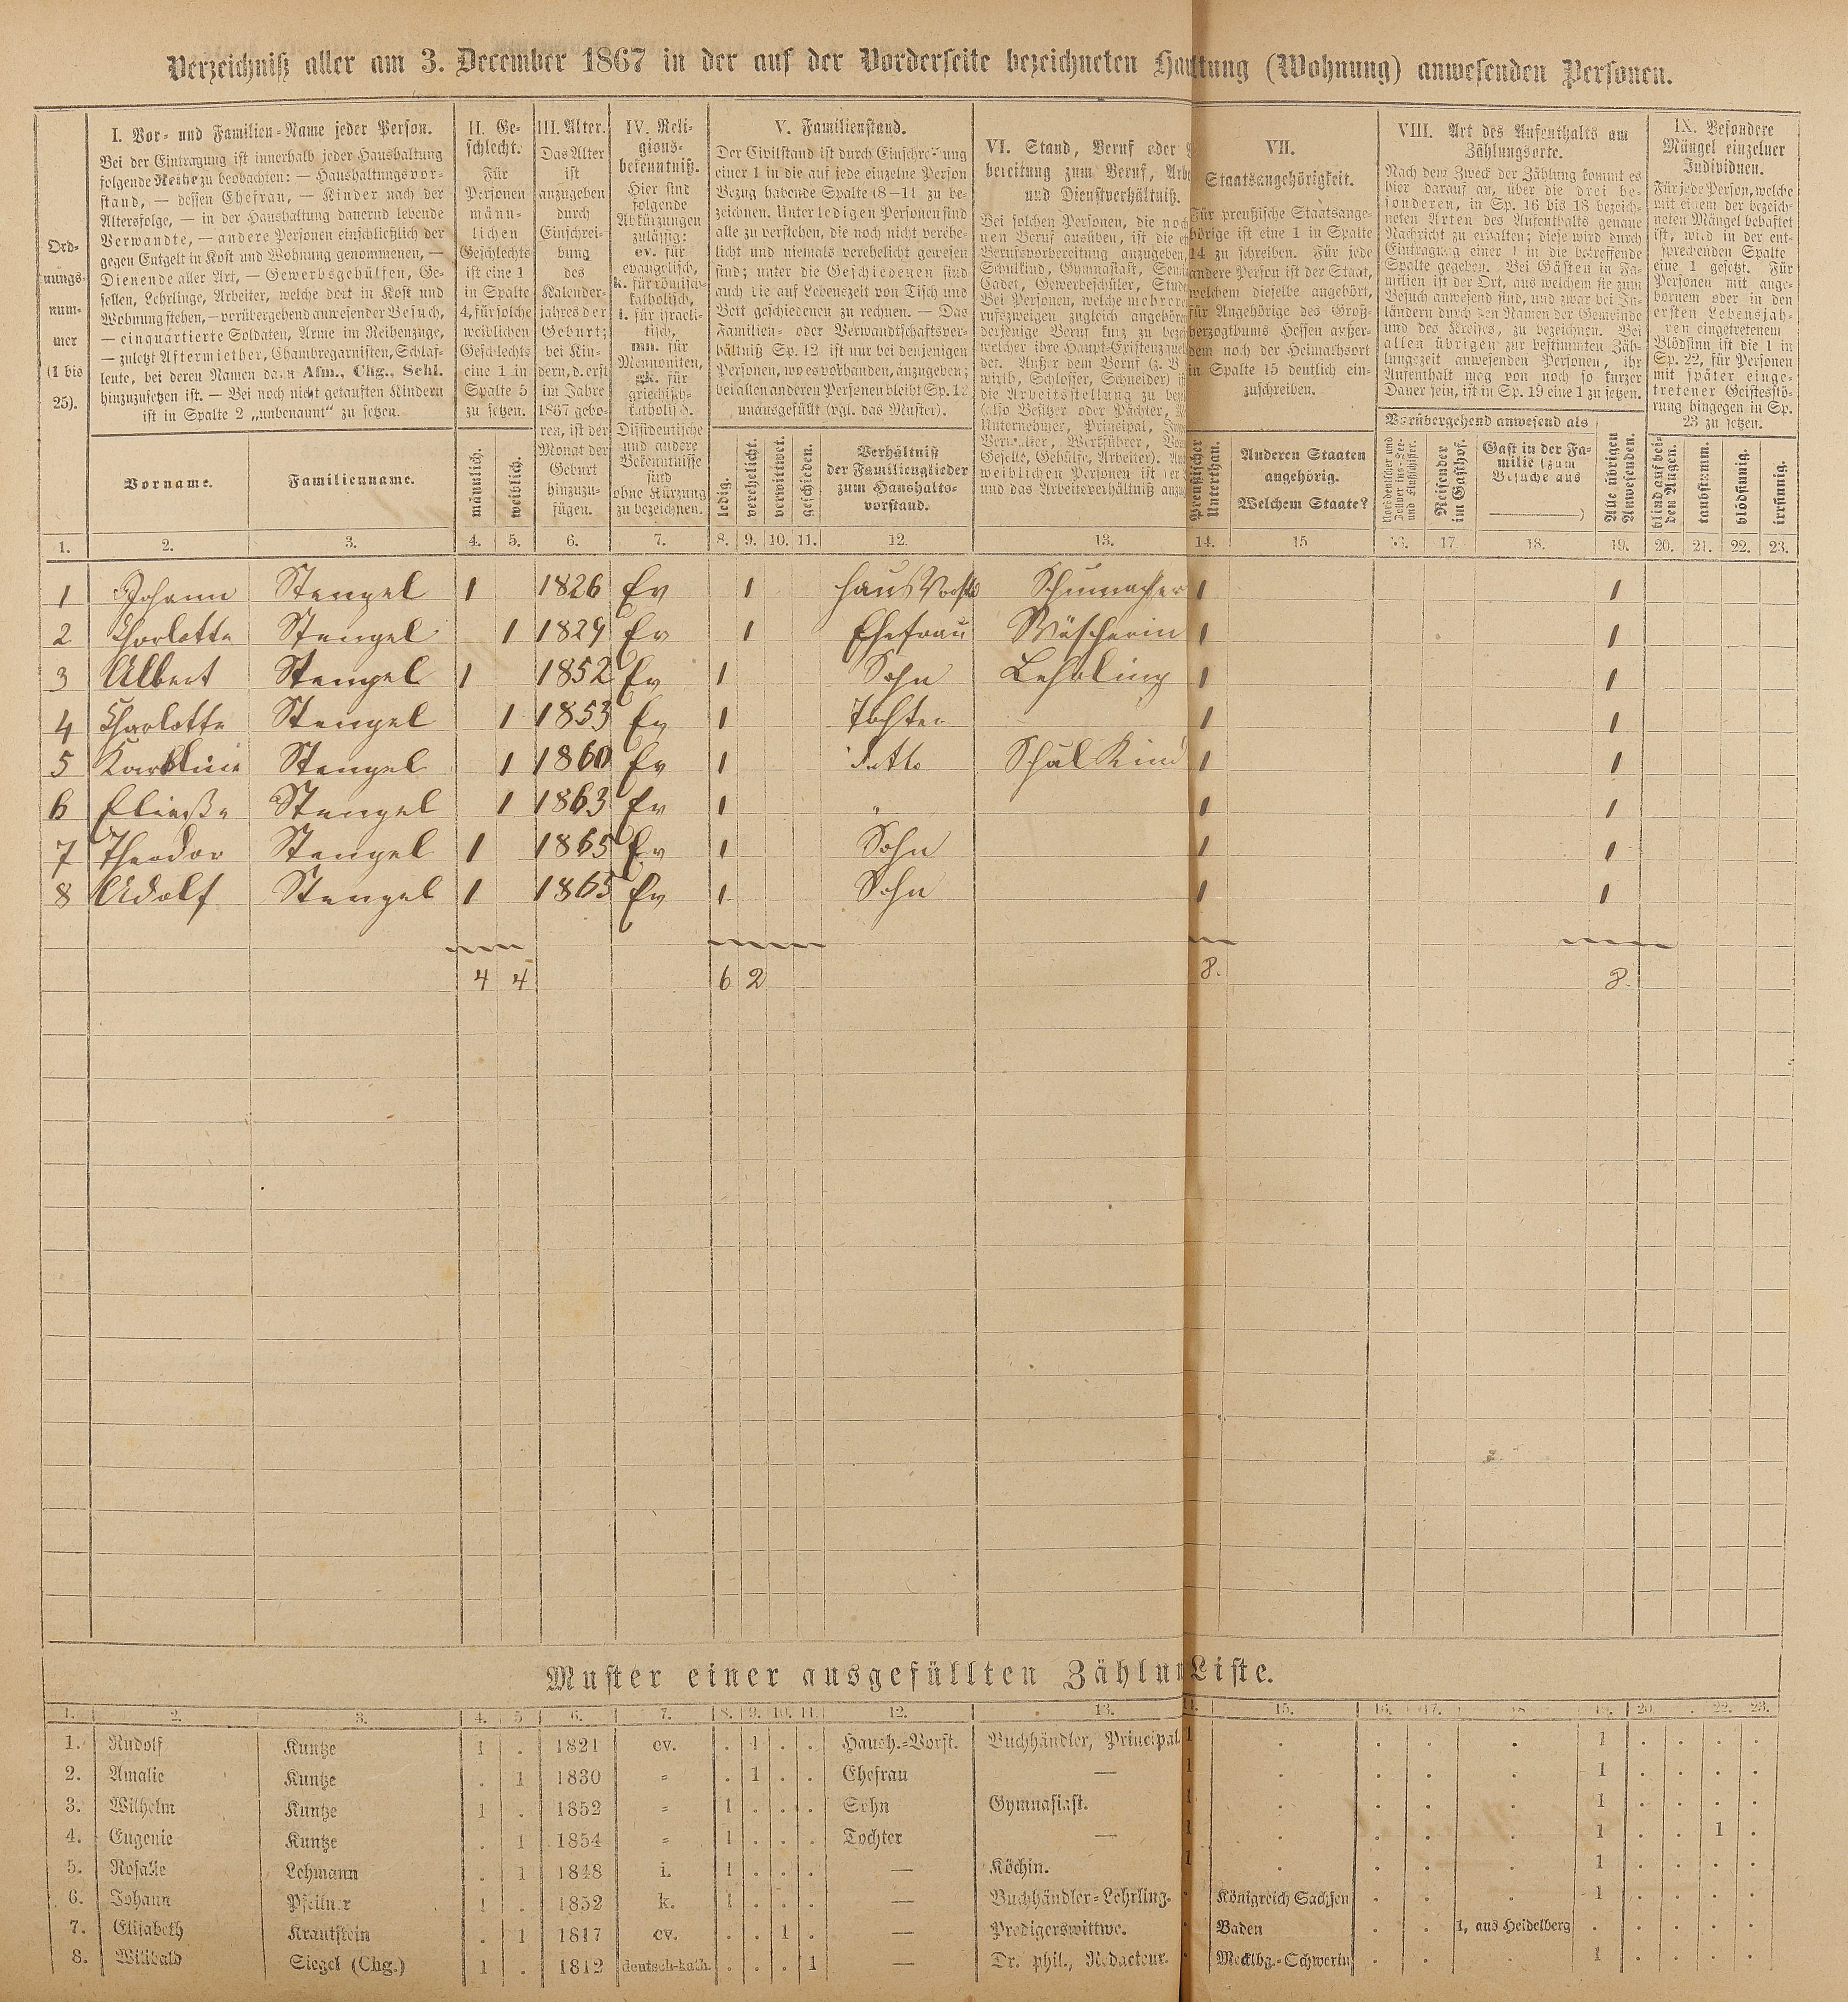 Verzeichniß aller am 3. December 1867 in der auf der Vorderseite bezeichneten Hau tung (Wohnung) anwesenden Personen.
Ord-
nungs-
num-
mer
(1 bis
25).
I. Vor- und Familien-Name jeder Person.
Bei der Eintragung ist innerhalb jeder Haushaltung
folgende Reihe zu beobachten: — Haushaltungsvor-
stand, — dessen Ehefrau, — Kinder nach der
Altersfolge, — in der Haushaltung dauernd lebende
Verwandte, — andere Personen einschließlich der
gegen Entgelt in Kost und Wohnung genommenen, —
Dienende aller Art, — Gewerbsgehülfen, Ge-
sellen, Lehrlinge, Arbeiter, welche dort in Kost und
Wohnung stehen, — vorübergehend anwesender Besuch,
— einquartierte Soldaten, Arme im Reihenzuge,
— zuletzt Aftermiether, Chambregarnisten, Schlaf-
leute, bei deren Namen dann Afm., Chg., Schl.
hinzuzusetzen ist. — Bei noch nicht getauften Kindern
ist in Spalte 2 „unbenannt“ zu setzen.
Vorname.
Familienname.
II. Ge-
schlecht.
Für
Personen
männ-
lichen
Geschlechts
ist eine 1
in Spalte
4, für solche
weiblichen
Geschlechts
eine 1 in
Spalte 5
zu setzen.
männlich.
weiblich.
III. Alter.
Das Alter
ist
anzugeben
durch
Einschrei-
bung
des
Kalender-
jahres der
Geburt;
bei Kin-
dern, d. erst
im Jahre
1867 gebo-
ren, ist der
Monat der
Geburt
hinzuzu-
fügen.
IV. Reli-
gions-
bekenntniß.
Hier sind
folgende
Abkürzungen
zulässig:
ev. für
evangelisch,
k. für römisch-
katholisch,
i. für israeli-
tisch,
mn. für
Mennoniten,
gk. für
griechisch-
katholisch.
Dissidentische
und andere
Bekenntnisse
sind
ohne Kürzung
zu bezeichnen.
V. Familienstand.
Der Civilstand ist durch Einschreibung
einer 1 in die auf jede einzelne Person
Bezug habende Spalte (8—11) zu be-
zeichnen. Unter ledigen Personen sind
alle zu verstehen, die noch nicht verehe-
licht und niemals verehelicht gewesen
sind; unter die Geschiedenen sind
auch die auf Lebenszeit von Tisch und
Bett geschiedenen zu rechnen. — Das
Familien- oder Verwandtschaftsver-
hältniß Sp. 12 ist nur bei denjenigen
Personen, wo es vorhanden, anzugeben;
bei allen anderen Personen bleibt Sp. 12
unausgefüllt (vgl. das Muster).
ledig.
verehelicht.
verwittwet.
geschieden.
Verhältniß
der Familienglieder
zum Haushalts-
vorstand.
VI. Stand, Beruf oder
bereitung zum Beruf, Arbe
und Dienstverhältniß.
Bei solchen Personen, die noch
nen Beruf ausüben, ist die
Berufsvorbereitung anzugeben,
Schulkind, Gymnasiast, Semi
Cadet, Gewerbeschüler, Stude
Bei Personen, welche mehrere
rufszweigen zugleich angehören
derjenige Beruf kurz zu bezei
welcher ihre Haupt-Existenzquel
det. Außer dem Beruf (z. B.
wirth, Schlosser, Schneider) is
die Arbeitsstellung zu bez
(also Besitzer oder Pächter,
Unternehmer, Principal,
Verwalter, Werkführer,
Geselle, Gehülfe, Arbeiter).
weiblichen Personen ist der
und das Arbeitsverhältniß anzug
VII.
Staatsangehörigkeit.
Für preußische Staatsange-
hörige ist eine 1 in Spalte
14 zu schreiben. Für jede
andere Person ist der Staat,
welchem dieselbe angehört,
für Angehörige des Groß-
herzogthums Hessen außer-
dem noch der Heimathsort
in Spalte 15 deutlich ein-
zuschreiben.
Preußischer
Unterthan.
Anderen Staaten
angehörig.
Welchem Staate?
VIII. Art des Aufenthalts am
Zählungsorte.
Nach dem Zweck der Zählung kommt es
hier darauf an, über die drei be-
sonderen, in Sp. 16 bis 18 bezeich-
neten Arten des Aufenthalts genaue
Nachricht zu erhalten; diese wird durch
Eintragung einer 1 in die betreffende
Spalte gegeben. Bei Gästen in Fa-
milien ist der Ort, aus welchem sie zum
Besuch anwesend sind, und zwar bei In-
ländern durch den Namen der Gemeinde
und des Kreises, zu bezeichnen. Bei
allen übrigen zur bestimmten Zäh-
lungszeit anwesenden Personen, ihr
Aufenthalt mag von noch so kurzer
Dauer sein, ist in Sp. 19 eine 1 zu setzen.
Vorübergehend anwesend als
Norddeutscher und
Zollver.ins-See-
und Flußschiffer.
Reisender
im Gasthof.
Gast in der Fa-
milie (zum
Besuche aus
)
Alle übrigen
Anwesenden.
IX. Besondere
Mängel einzelner
Individuen.
Für jede Person, welche
mit einem der bezeich-
neten Mängel behaftet
ist, wird in der ent-
sprechenden Spalte
eine 1 gesetzt. Für
Personen mit ange-
bornem oder in den
ersten Lebensjah-
ren eingetretenem
Blödsinn ist die 1 in
Sp. 22, für Personen
mit später einge-
tretener Geistesstö-
rung hingegen in Sp.
23 zu setzen.
blind auf bei-
den Augen.
taubstumm.
blödsinnig.
irrsinnig.
1. 2. 3. 4. 5. 6. 7. 8. 9. 10. 11. 12. 13. 14. 15 16. 17. 18. 19. 20. 21. 22. 23.
1 Johann Stengel 1 1826 Ev 1 HausVorst Schumacher 1 1
2 Charlotte Stengel 1 1829 Ev 1 Ehefrau Wäscherin 1 1
3 Albert Stengel 1 1852 Ev 1 Sohn Lehrling 1 1
4 Charlotte Stengel 1 1853 Ev 1 Tochter 1 1
5 Karoline Stengel 1 1860 Ev 1 ditto Schul Kind 1 1
6 Stengel 1 1863 Ev 1 " 1 1
7 Theodor Stengel 1 1865 Ev 1 Sohn 1 1
8 Adolf Stengel 1 1865 Ev 1 Sohn 1 1
4 4 6 2 8. 8.
Muster einer ausgefüllten Zählu Liste.
1. 2. 3. 4. 5 6. 7. 8. 9. 10. 11. 12. 13. 15. 16. 17. 20 22. 23.
1. Rudolf Kuntze 1 . 1821 ev. . 1 . . Haush.-Vorst. Buchhändler, Principal. 1 . . . . 1 . . . .
2. Amalie Kuntze . 1 1830 = . 1 . . Ehefrau — 1 . . . . 1 . . . .
3. Wilhelm Kuntze 1 . 1852 = 1 . . . Sohn Gymnasiast. 1 . . . . 1 . . . .
4. Eugenie Kuntze . 1 1854 = 1 . . . Tochter — 1 . . . . 1 . . 1 .
5. Rosalie Lehmann . 1 1848 i. 1 . . . — Köchin. 1 . . . . 1 . . . .
6. Johann Pfeilner 1 . 1852 k. 1 . . . — Buchhändler-Lehrling. . Königreich Sachsen . . . 1 . . . .
7. Elisabeth Krautstein . 1 1817 ev. . . 1 . — Predigerswittwe. . Baden . . 1, aus Heidelberg . . . . .
8. Wilibald Siegel (Chg.) 1 . 1812 deutsch-kath. . . . 1 — Dr. phil., Redacteur. . Mecklbg.-Schwerin . . . 1 . . . .